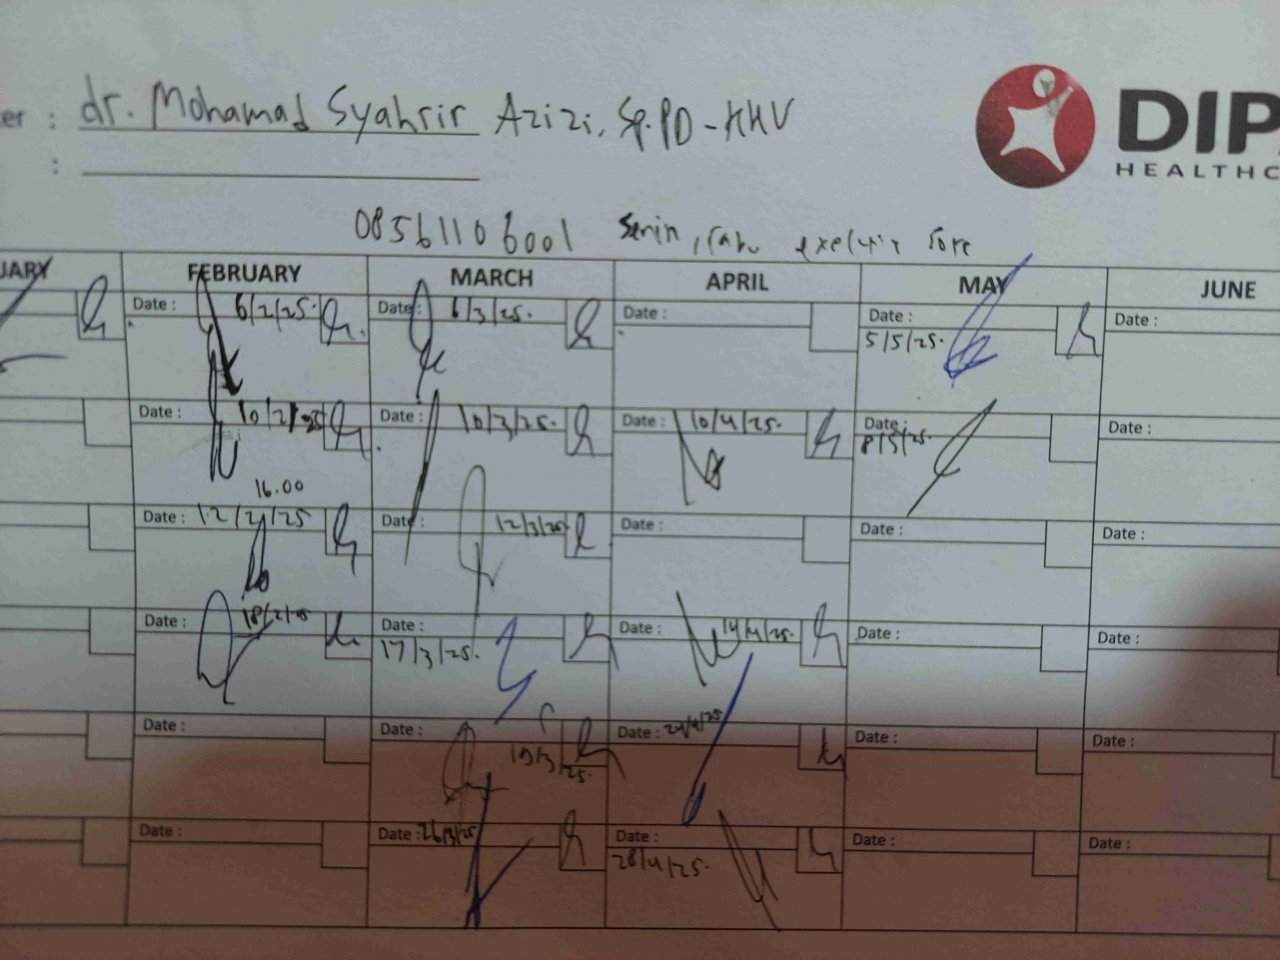 er : dr. Mohamad Syahrir Azizi, Sp.PD-KHV
:
DIP
HEALTHC
085611106001 Senin, rabu sore
UARY FEBRUARY MARCH APRIL MAY JUNE
Date : 6/2/25. Date : 6/3/25. Date : Date : 5/5/25. Date :
Date : 10/2/25 Date : 10/3/25. Date : 10/4/25. Date : 8/5/25. Date :
16.00
Date : 12/2/25 Date : 12/3/25 Date : Date : Date :
Date : 18/2/25 Date : 17/3/25. Date : 14/4/25. Date : Date :
Date : Date : 19/3/25. Date : 24/4/25 Date : Date :
Date : Date : 26/3/25 Date : 28/4/25. Date : Date :